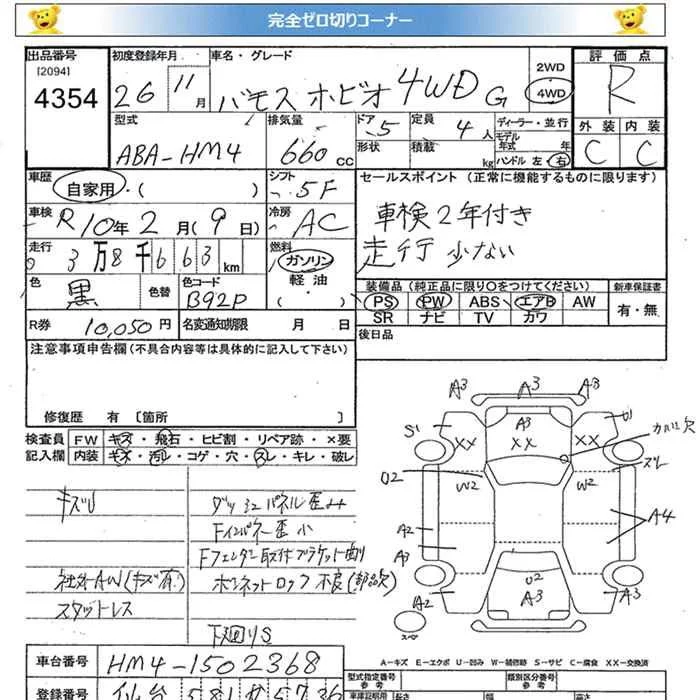 完全ゼロ切りコーナー
出品番号
[2094]
4354
初度登録年月
26
11月
車名・グレード
バモス ホビオ 4WD G
2WD
4WD
評価点
R
型式
ABA-HM4
排気量
660 cc
ドア
5
定員
4人
形状
積載
kg
ディーラー・並行
モデル
年式 年
ハンドル 左・右
外装
内装
C
C
車歴
自家用・( )
シフト
5F
セールスポイント (正常に機能するものに限ります)
車検2年付き
走行 少ない
車検
R10年2月(9日)
冷房
AC
走行
3万8千663 km
燃料
ガソリン
軽油
( )
色
黒
色替
色コード
B92P
装備品 (純正品に限り○をつけてください)
新車保証書
PS
PW
ABS
エアB
AW
SR
ナビ
TV
カワ
有・無
R券
10,050円
名変通知期限 月 日
後日品
注意事項申告欄(不具合内容等は具体的に記入して下さい)
修復歴 有 [箇所 ]
検査員
記入欄
FW
キズ・飛石・ヒビ割・リペア跡・×要
内装
キズ・汚レ・コゲ・穴・スレ・キレ・破レ
キズU
ダッシュパネル歪み
Fインパネー歪 小
Fフェンダー取付ブラケット曲り
社外AW(キズ有)
ボンネットロック不良(部品欠)
スタットレス
下廻りS
A3
A3
A3
A3
S1
XX
XX
XX
U1
カバー欠
スレ
U2
W2
W2
A2
A4
A3
U2
A2
A3
A3
スペ
A-キズ E-エクボ U-凹み W-補修跡 S-サビ C-腐食 XX-交換済
車台番号
HM4-1502368
型式指定番号
参考
類別区分番号
参考
登録番号
仙台 581 せ 5736
車庫証明用
長さ
幅
高さ